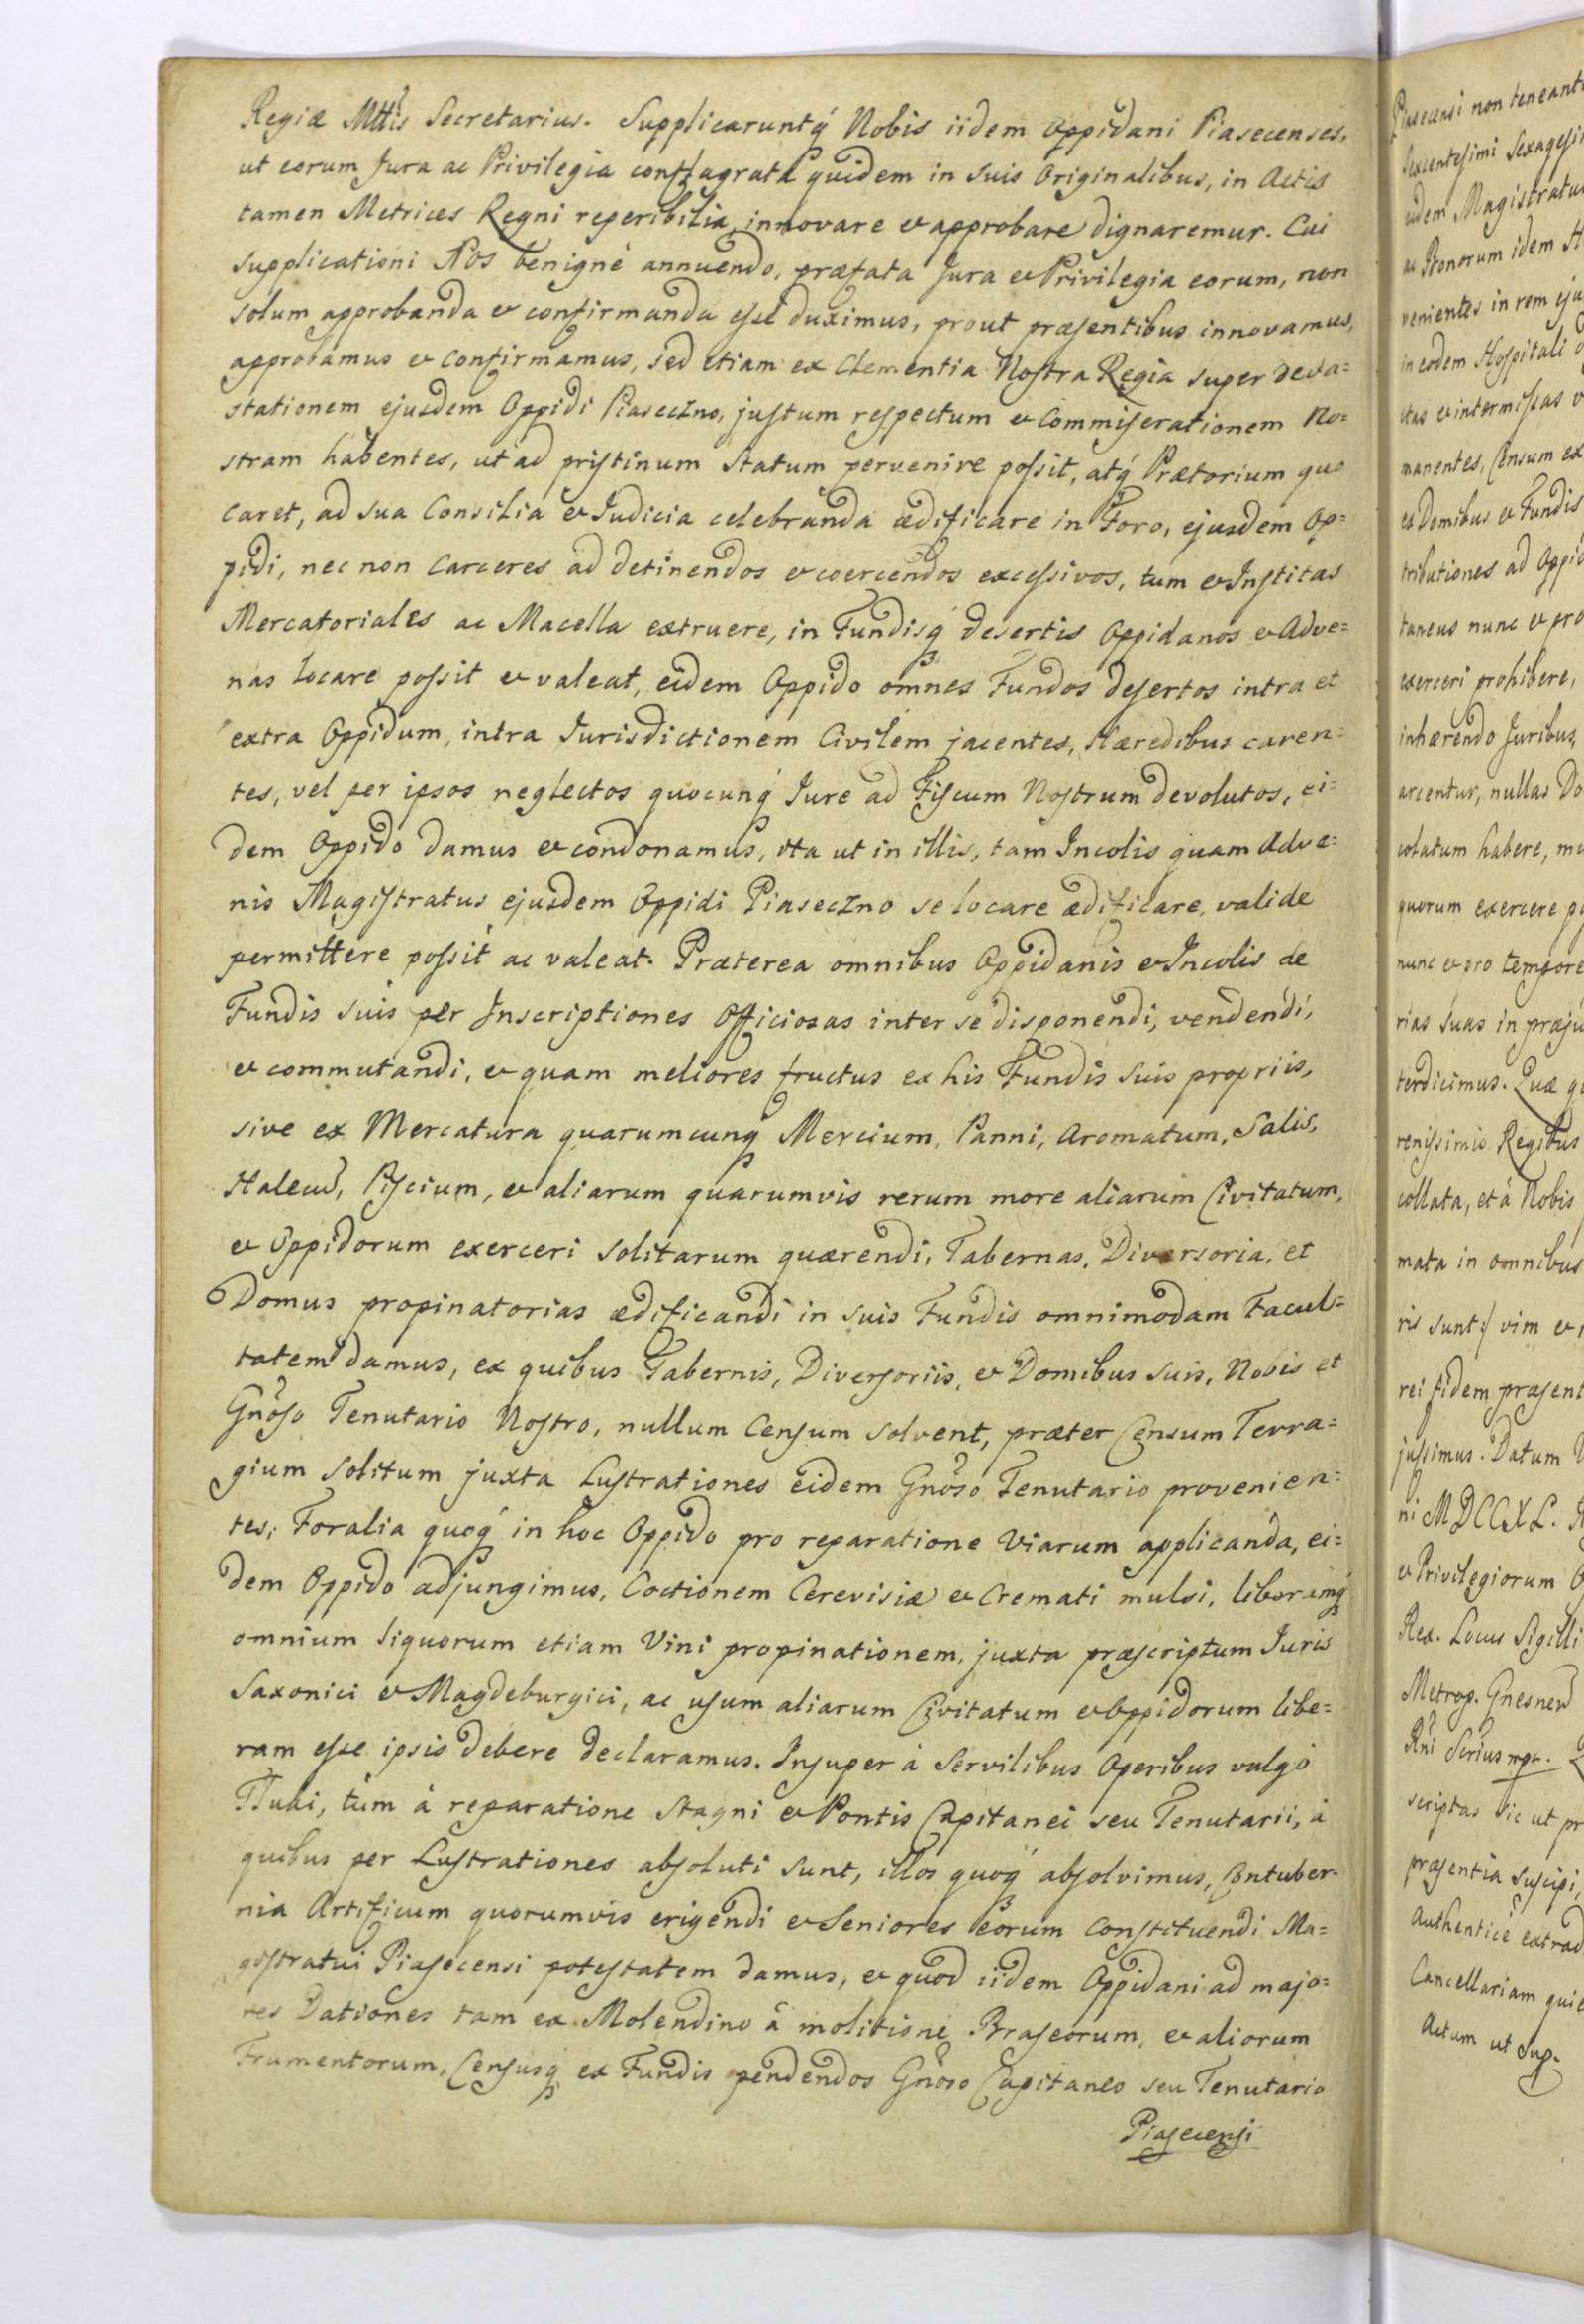 Regiæ Mttis Secretarius. Supplicaruntq́ Nobis iidem Oppidani Piasecenses,
ut eorum Jura ac Privilegia conflagrata quidem in suis Originalibus, in Actis
tamen Metrices Regni reperibilia, innovare et approbare dignaremur. Cui
supplicationi Nos benignè annuendo, præfata Jura et Privilegia eorum, non
solum approbanda et confirmanda esse duximus, prout præsentibus innovamus,
approbamus et confirmamus, sed etiam ex Clementia Nostra Regia super deva=
stationem ejusdem Oppidi Piaseczno, justum respectum et Commiserationem No=
stram habentes, ut ad pristinum Statum pervenire possit, atq́ Prætorium quo
caret, ad sua Consilia et Judicia celebranda ædificare in Foro, ejusdem Op=
pidi, nec non Carceres ad detinendos et coercendos excessivos, tum et Institas
Mercatoriales ac Macella extruere, in Fundisq́ desertis Oppidanos et Adve=
nas locare possit et valeat, eidem Oppido omnes Fundos desertos intra et
extra Oppidum, intra Jurisdictionem Civilem jacentes, Hæredibus caren=
tes, vel per ipsos neglectos quocunq́ Jure ad Fiscum Nostrum devolutos, ei=
dem Oppido damus et condonamus, ita ut in illis, tam Incolis quam Adve=
nis Magistratus ejusdem Oppidi Piaseczno se locare ædificare, valide
permittere possit ac valeat. Præterea omnibus Oppidanis et Incolis de
Fundis suis per Inscriptiones Officiosas inter se disponendi, vendendi,
et commutandi, et quam meliores fructus ex his Fundis suis propriis,
sive ex Mercatura quarumcunq́ Mercium, Panni, Aromatum, Salis,
Halecu, Piscium, et aliarum quarumvis rerum more aliarum Civitatum,
et Oppidorum exerceri solitarum quærendi, Tabernas, Diversoria, et
Domus propinatorias ædificandi in suis Fundis omnimodam Facul=
tatem damus, ex quibus Tabernis, Diversoriis, et Domibus suis, Nobis et
Gnoso Tenutario Nostro, nullum Censum solvent, præter Censum Terra=
gium solitum juxta Lustrationes eidem Gnoso Tenutario provenien=
tes, Foralia quoq́ in hoc Oppido pro reparatione Viarum applicanda, ei=
dem Oppido adjungimus, Coctionem Cerevisiæ et Cremati mulsi, liberamq́
omnium liquorum etiam Vini propinationem, juxta præscriptum Juris
Saxonici et Magdeburgici, ac usum aliarum Civitatum et Oppidorum libe=
ram esse ipsis debere declaramus. Insuper à Servilibus Operibus vulgò
Tłuki, tum à reparatione Stagni et Pontis Capitanei seu Tenutarii, à
quibus per Lustrationes absoluti sunt, illos quoq́ absolvimus, Contuber=
nia Artificum quorumvis erigendi et Seniores eorum constituendi Ma=
gistratui Piasecensi potestatem damus, et quod iidem Oppidani ad majo=
res Dationes tam ex Molendino à molitione Braseorum, et aliorum
Frumentorum, Censusq́ ex Fundis pendendos Gnoso Capitaneo seu Tenutario
Piasecensi
Piasecensi non teneant
Sexcentesimi Sexagesi
idem Magistratu
venientes in rem eju
in eodem Hospitali
manentes, Censum ex
ex Domibus et Fundis
tributiones ad Oppid
taneus nunc et pro
exerceri prohibere,
inhærendo Juribus,
arcentur, nullas Do
quorum exercere
nunc et pro tempore
rias suas in præju
terdicimus. Quæ
renissimis Regibus
collata, et à Nobis
mata in omnibus
ris sunt vim et
rei fidem præsent
jussimus. Datum
ni MDCCXL.
et Privilegiorum
Rex. Locus Sigilli
Metrop. Gnesnen
scriptas sic ut pr
præsentia suscipi,
Authenticè extrad
Cancellariam
Actum ut Sup.